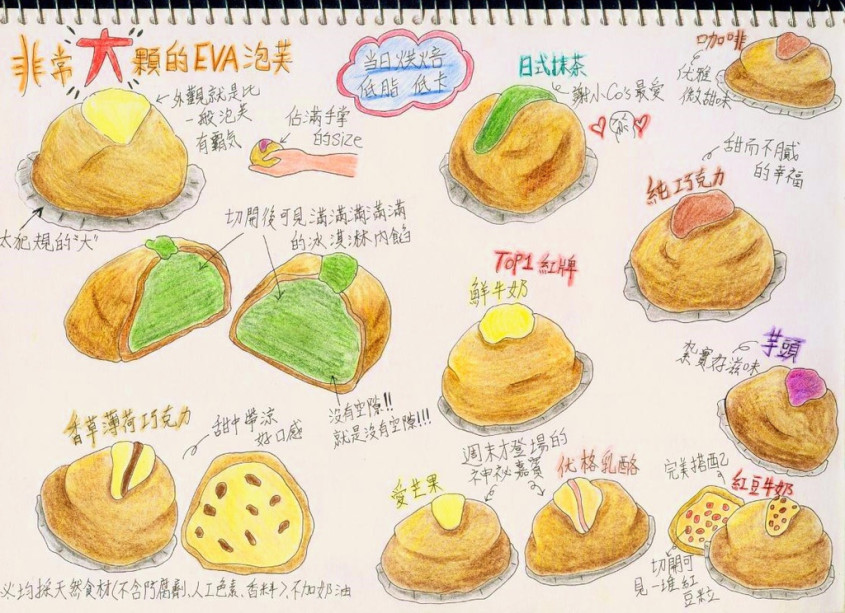 非常大顆的EVA泡芙
外觀就是比
一般泡芙
有霸氣
太犯規的"大"
佔滿手掌
的size
當日烘焙
低脂 低卡
日式抹茶
謝小Co's最愛
咖啡
优雅
微甜味
純巧克力
甜而不膩
的幸福
切開後可見滿滿滿滿滿
的冰淇淋內餡
沒有空隙!!
就是沒有空隙!!!
TOP1 紅牌
鮮牛奶
芋頭
紮實好滋味
香草薄荷巧克力
甜中帶涼
好口感
週末才登場的
神祕嘉賓
愛芒果
优格乳酪
完美搭配
紅豆牛奶
切開可
見一堆紅
豆粒
均採天然食材(不含防腐劑、人工色素、香料)、不加奶油